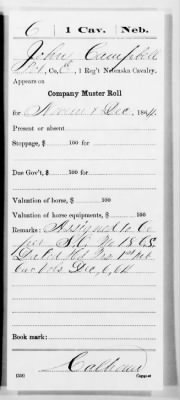 C 1 Cav. Neb.
John Campbell
Pvt., Co. C, 1 Reg't Nebraska Cavalry.
Appears on
Company Muster Roll
for Nov & Dec, 1864.
Present or absent
Stoppage, $ 100 for
Due Gov't, $ 100 for
Valuation of horse, $ 100
Valuation of horse equipments, $ 100
Remarks: Assigned to Co
per S.O. No 18 C.S.
Dated Hd Qrs 1st Neb
Cav Vols Dec, 6, 64
Book mark:
Calhoun
(358) Copyist